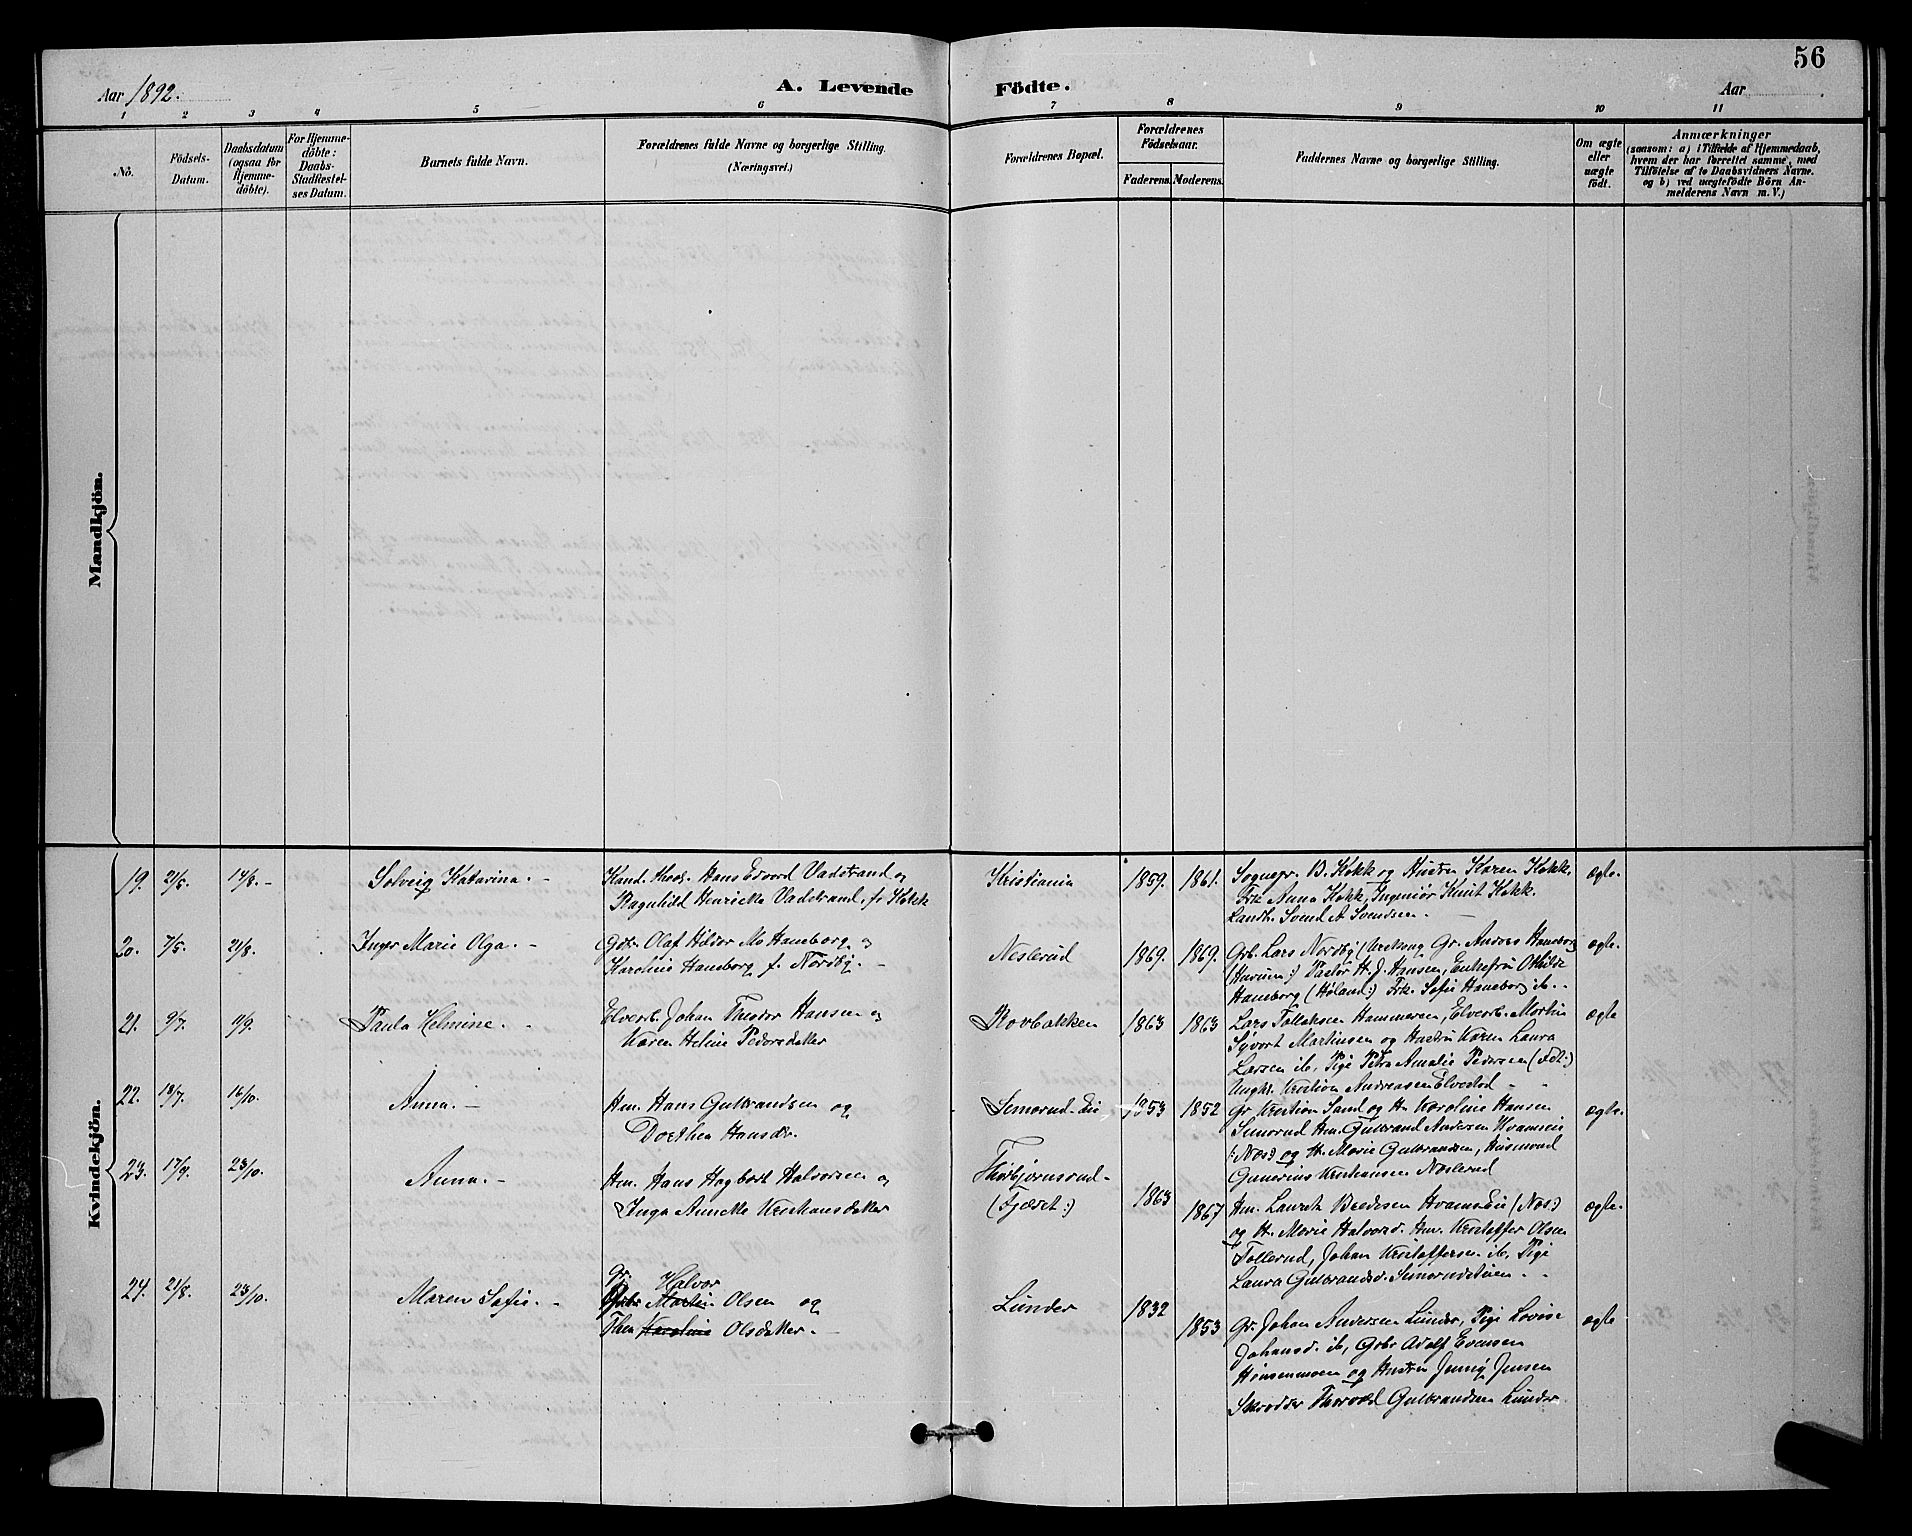 56
Aar 1892.
A. Levende Födte.
Aar
1 2 3 4 5 6 7 8 9 10 11
No.
Födsels-Datum.
Daabsdatum (ogsaa for Hjemme-döbte).
For Hjemme-döbte: Daabs-Stadfæstel-ses Datum.
Barnets fulde Navn.
Forældrenes fulde Navne og borgerlige Stilling.
(Næringsvei.)
Forældrenes Bopæl.
Forældrenes Födselsaar.
Faderens. Moderens.
Faddernes Navne og borgerlige Stilling.
Om ægte eller uægte födt.
Anmærkninger
(saasom: a) i Tilfælde af Hjemmedaab,
hvem der har forrettet samme, med
Tilföielse af to Daabsvidners Navne.
og b) ved uægtefödte Börn An-
melderens Navn m. V.)
Mandkjön.
Kvindekjön.
19. 21/6. 14/8. Solveig Katarina.
Kand. theol. Hans Edvard Vadstrand og
Ragnhild Henrikke Vadstrand, f. Kokk
Kristiania 1859. 1861.
Sognepr. B. Kokk og Hustru Karen Kokk,
Frk Anna Kokk, Ingeniör Knut Kokk.
Landh. Svend A Svendsen.
ægte.
20. 7/5. 21/8. Inger Marie Olga.
Gbr. Olaf Hildor Mo Haneborg og
Karoline Haneborg f. Nordby.
Neslerud 1869. 1869.
Grb. Lars Nordby (Urskoug Gr. Anders Haneborg
(Hurum:) Pastor H. J. Hansen, Enkefru Othilde
Haneborg (Høland:) Frk. Sofie Haneborg ib.
ægte.
21. 9/7. 11/9. Paula Helmine.
Elverb. Johan Theodor Hansen og
Karen Heline Pedersdatter
Rovbakken 1863 1863
Lars Tollefsen Hammeren, Elverb. Martin
Syvert Martinsen og Hustru Karen Laura
Larsen ib. Pige Petra Amalie Pedersen
Ungk. Kristian Andreasen Elvestad
ægte
22. 18/7. 16/10. Anna.
Hm. Hans Gulbrandsen og
Dorthea Hansdr.
Semorud-Eie 1853 1852
Gr Kristian Sand og H. Karoline Hansen
Simorud Hm. Gulbrand Andersen Hvamseie
(Næs) og H. Marie Gulbrandsen, Husmand
Gunerius Kristiansen Neslerud
ægte.
23. 17/9. 23/10. Anna.
Hm. Hans Hagbart Halvorsen og
Inga Annette Kristiansdatter
Thorbjørnsrud-
(Fjæret:) 1863
1867
Hm. Laurits Bredesen Hvamseie (Næs)
og H. Marie Halvorsd. Hm. Kristoffer Olsen
Tollerud, Johan Kristoffersen ib. Pige
Laura Gulbrandsd. Simorudstuen
ægte.
24. 21/8. 23/10. Maren Sofie.
Gr. Halvor
Martin Olsen og
Thea Karoline Olsdatter.
Lunder 1832
1853
Gr. Johan Andersen Lunder, Pige Lovise
Johansd. ib, Grbr Adolf Evensen
Hønsenmoen og Hustru Jenny Jensen
Skrædder Thorvald Gulbrandsen Lunder.
ægte